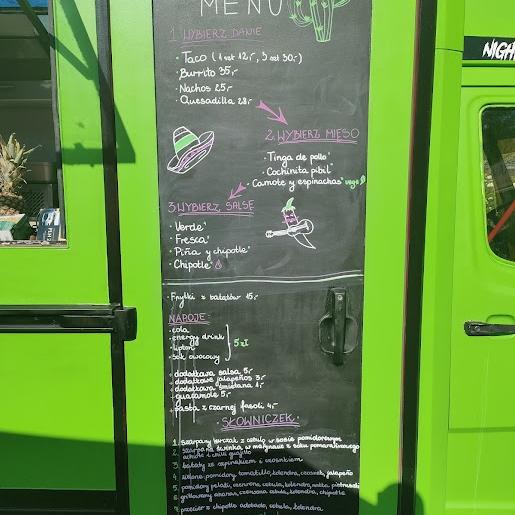 MENU
1. WYBIERZ DANIE
• Taco (1 szt 12,-, 3 szt 30,-)
• Burrito 35,-
• Nachos 25,-
• Quesadilla 28,-
2. WYBIERZ MIĘSO
• Tinga de pollo¹
• Cochinita pibil²
• Camote y espinachas³ vege
3. WYBIERZ SALSĘ
• Verde⁴
• Fresca⁵
• Piña y chipotle⁶
• Chipotle⁷
• Frytki z batatów 15,-
NAPOJE:
• cola
• energy drink
• lipton
• sok owocowy
5 zł
• dodatkowa salsa 5,-
• dodatkowe jalapeños 3,-
• dodatkowa śmietana 1,-
• guacamole 5,-
• pasta z czarnej fasoli 4,-
SŁOWNICZEK:
1. szarpany kurczak z cebulą w sosie pomidorowym
2. szarpana świnka w marynacie z soku pomarańczowego
achiote i chili guajillo
3. bataty ze szpinakiem i czosnkiem
4. zielone pomidory tomatillo, kolendra, czosnek, jalapeño
5. pomidory pelati, czerwona cebula, kolendra,
6. grillowany ananas, czerwona cebula, kolendra, chipotle
7. przecier z chipotle adobado, cebula, kolendra
NIGH